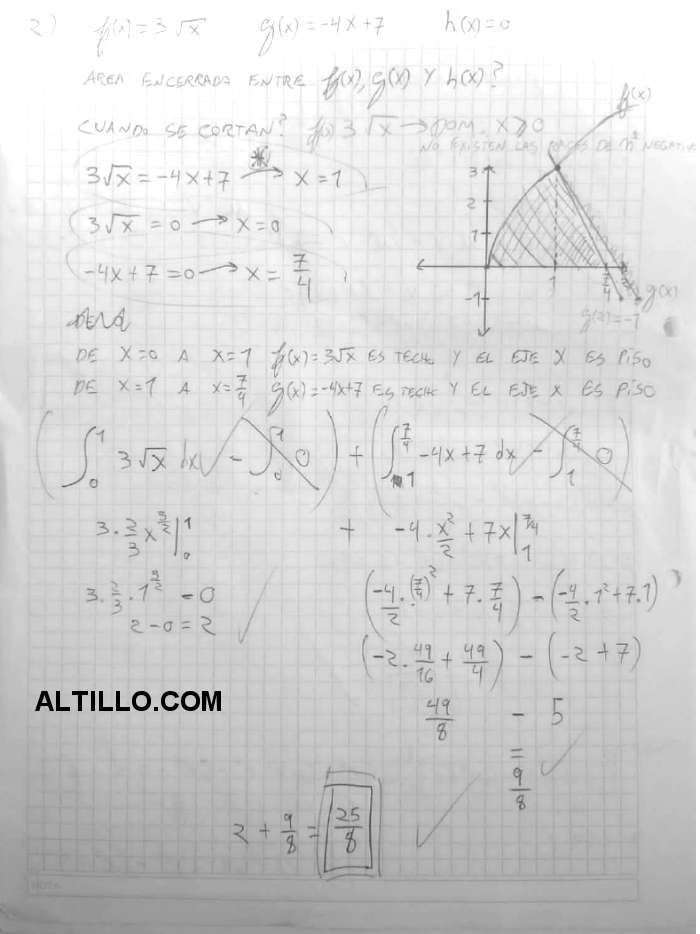 2) f(x) = 3√x g(x) = -4x+7 h(x) = 0
AREA ENCERRADA ENTRE f(x), g(x) Y h(x)?
CUANDO SE CORTAN? f(x) 3√x → DOM. X ≥ 0
NO EXISTEN LAS RAICES DE Nº NEGATIVO
3√x = -4x+7 → x = 1
3√x = 0 → x = 0
-4x+7 = 0 → x = 7/4
f(x)
3
2
1
-1
1
7/4
g(x)
g(2) = -1
DE X=0 A X=1 f(x) = 3√x ES TECHO Y EL EJE X ES PISO
DE X=1 A X=7/4 g(x) = -4x+7 ES TECHO Y EL EJE X ES PISO
(∫₀¹ 3√x dx - ∫₀¹ 0) + (∫₁^(7/4) -4x+7 dx - ∫₁^(7/4) 0)
3 · 2/3 x^(3/2) |₀¹ + -4 · x²/2 + 7x |₁^(7/4)
3 · 2/3 · 1^(3/2) - 0 (-4/2 · (7/4)² + 7 · 7/4) - (-4/2 · 1² + 7 · 1)
2 - 0 = 2 (-2 · 49/16 + 49/4) - (-2 + 7)
ALTILLO.COM
49/8 - 5
=
9/8
2 + 9/8 = 25/8
NOTA